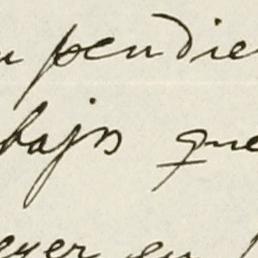 n pendie
bajos que
eyer en